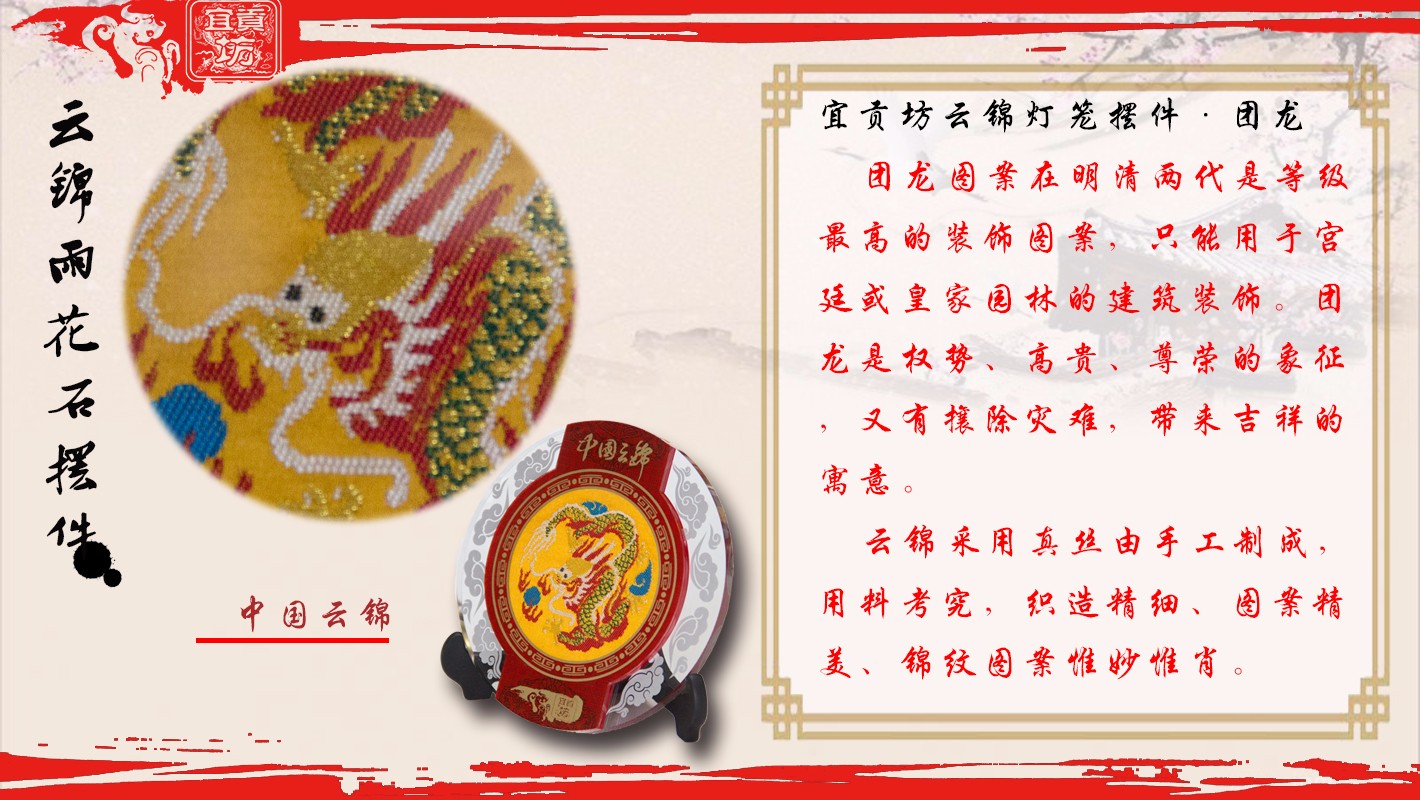 宜貢坊
云锦雨花石摆件
中国云锦
中国云锦
宜贡坊云锦灯笼摆件·团龙
团龙图案在明清两代是等级
最高的装饰图案，只能用于宫
廷或皇家园林的建筑装饰。团
龙是权势、高贵、尊荣的象征
，又有攘除灾难，带来吉祥的
寓意。
云锦采用真丝由手工制成，
用料考究，织造精细、图案精
美、锦纹图案惟妙惟肖。